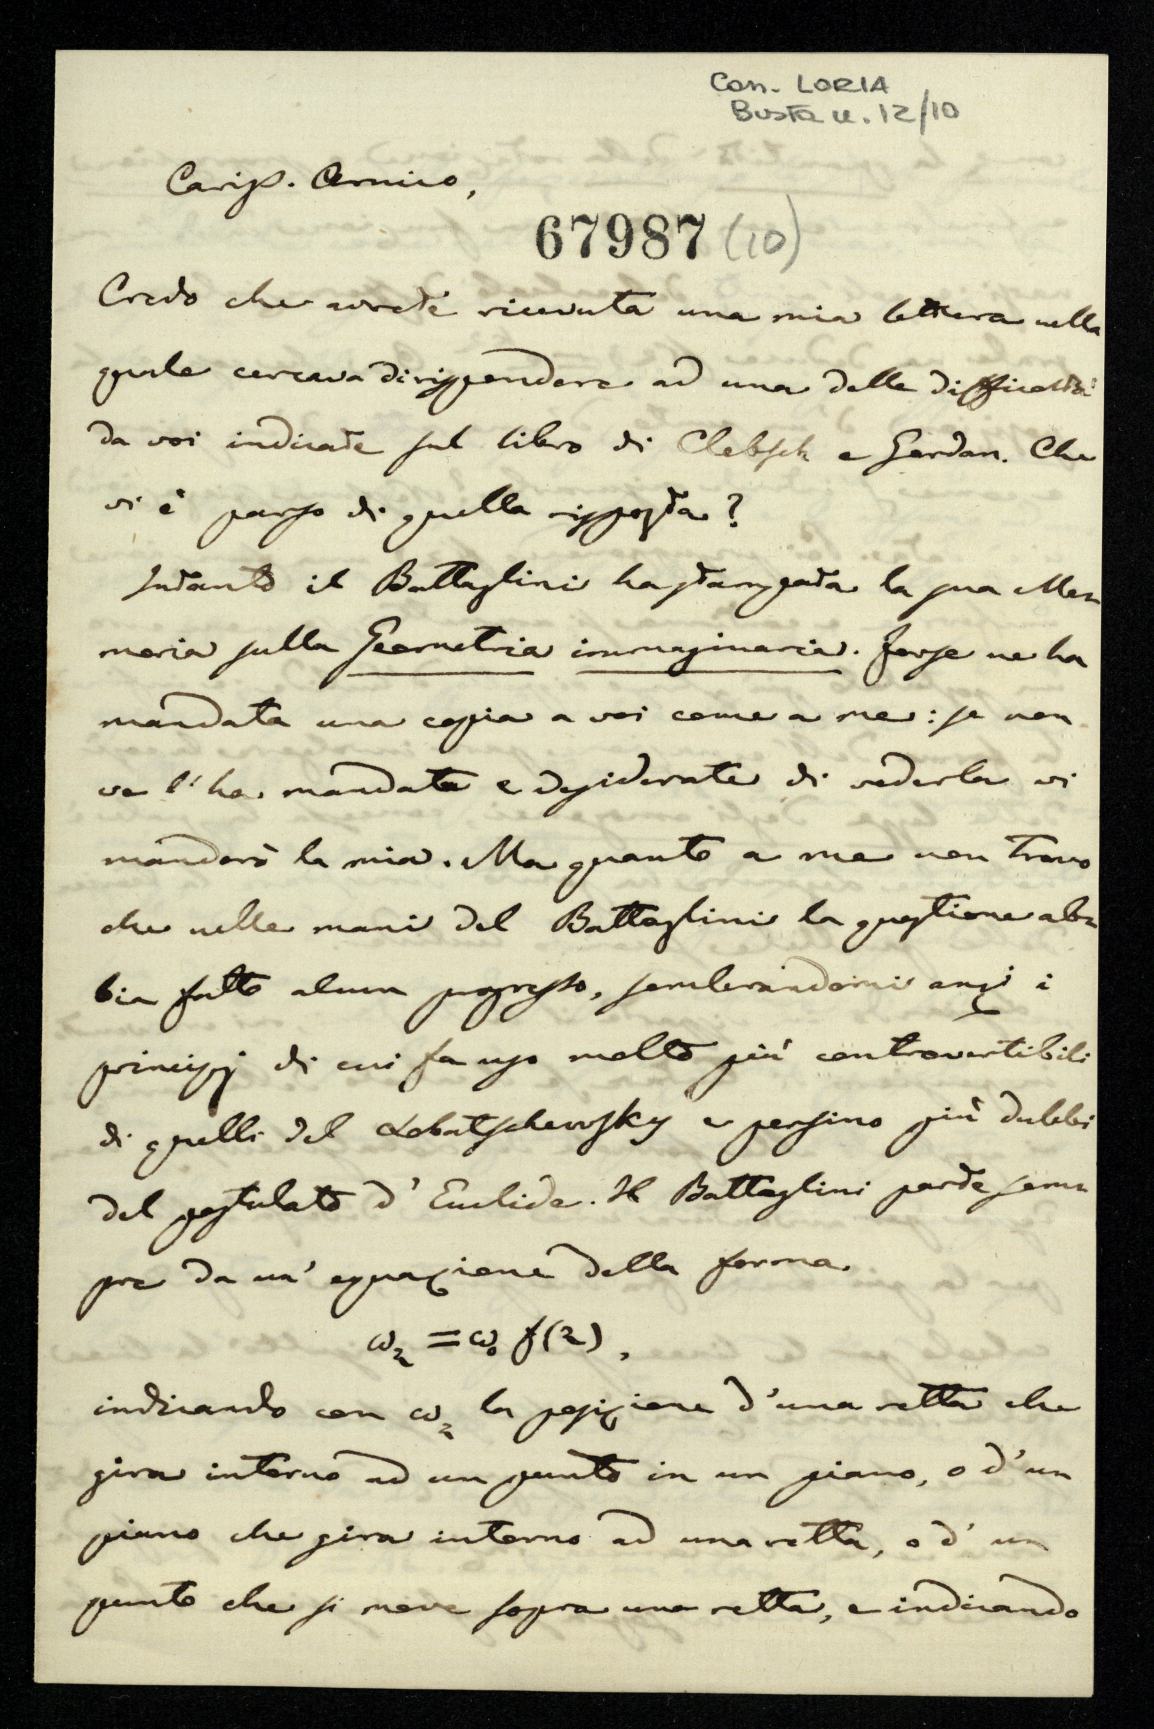 Con. LORIA
Busta n. 12/10
Cariss. Amico,
67987 (10)
Credo che avrete ricevuta una mia lettera nella
quale cercava di rispondere ad una delle difficoltà
da voi indicate sul libro di Clebsch e Gordan. Che
vi è parso di quella risposta?
Intanto il Battaglini ha stampata la sua Me-
moria sulla Geometria immaginaria. Forse ne ha
mandata una copia a voi come a me: se non
ve l'ha mandata e desiderate di vederla vi
manderò la mia. Ma quanto a me non trovo
che nelle mani del Battaglini la questione ab-
bia fatto alcun progresso, sembrandomi anzi i
principj di cui fa uso molto più controvertibili
di quelli del Lobatschewsky e persino più dubbi
del postulato d'Euclide. Il Battaglini parte sem-
pre da un' equazione della forma
ω₂ = ω₀ f(2),
indicando con ω₂ la posizione d'una retta che
gira intorno ad un punto in un piano, o d'un
piano che gira intorno ad una retta, o d' un
punto che si move sopra una retta, e indicando